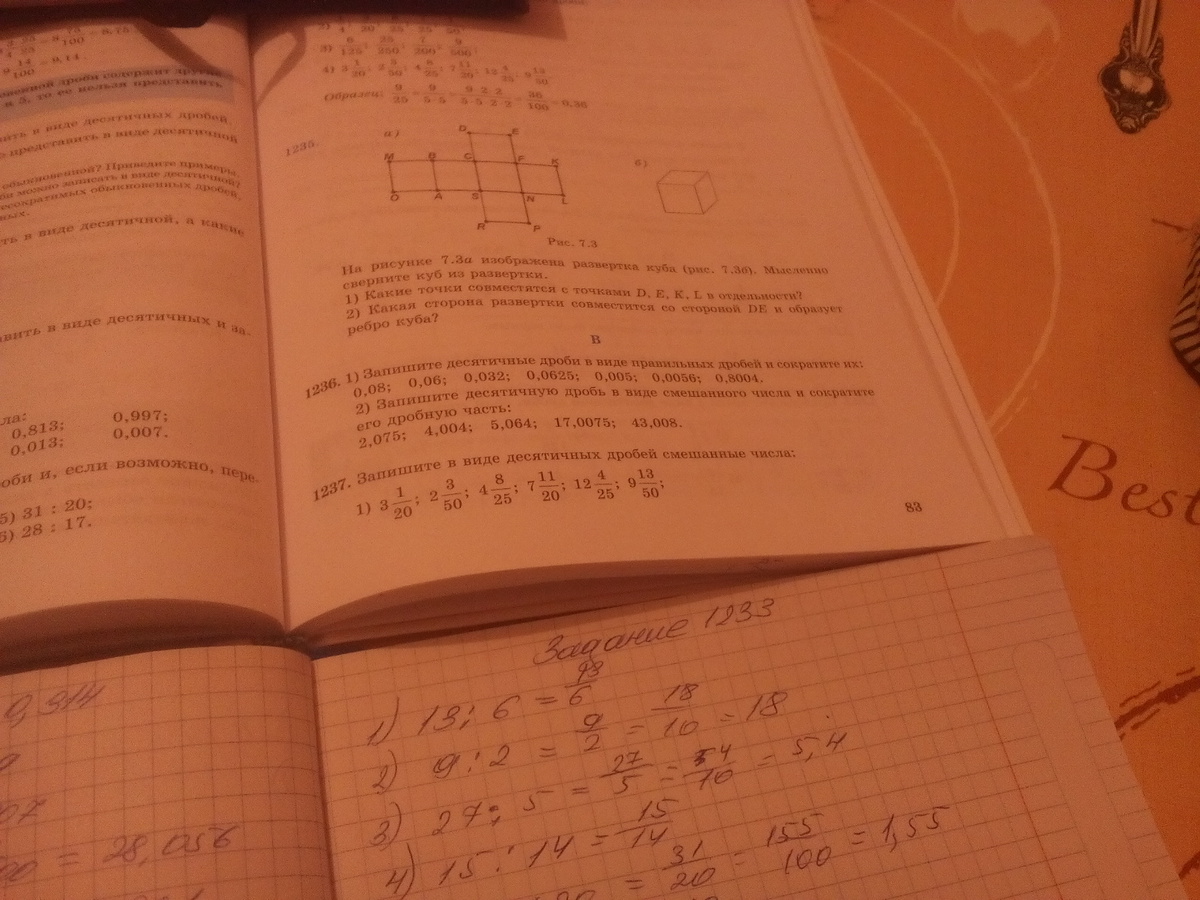 9 14/100 = 9,14.
овенной дроби содержит другие
и 5, то ее нельзя представить
вить в виде десятичных дробей.
представить в виде десятичной
обыкновенной? Приведите примеры.
би можно записать в виде десятичной?
несократимых обыкновенных дробей,
ных.
ть в виде десятичной, а какие
авить в виде десятичных и за-
ла:
0,813; 0,997;
0,013; 0,007.
оби и, если возможно, пере-
5) 31 : 20;
6) 28 : 17.
3) 6/125; 25/250; 7/200; 9/500;
4) 3 1/20; 2 3/50; 4 8/25; 7 11/20; 12 4/25; 9 13/50.
Образец: 9/25 = 9/5·5 = 9·2·2/5·5·2·2 = 36/100 = 0,36
1235.
а)
D E
M B C F K
O A S N L
R P
б)
Рис. 7.3
На рисунке 7.3а изображена развертка куба (рис. 7.3б). Мысленно
сверните куб из развертки.
1) Какие точки совместятся с точками D, E, K, L в отдельности?
2) Какая сторона развертки совместится со стороной DE и образует
ребро куба?
B
1236. 1) Запишите десятичные дроби в виде правильных дробей и сократите их:
0,08; 0,06; 0,032; 0,0625; 0,005; 0,0056; 0,8004.
2) Запишите десятичную дробь в виде смешанного числа и сократите
его дробную часть:
2,075; 4,004; 5,064; 17,0075; 43,008.
1237. Запишите в виде десятичных дробей смешанные числа:
1) 3 1/20; 2 3/50; 4 8/25; 7 11/20; 12 4/25; 9 13/50;
83
Best
Задание 1233
1) 13 : 6 = 13/6
2) 9 : 2 = 9/2 = 18/10 = 18
3) 27 : 5 = 27/5 = 54/10 = 5,4
4) 15 : 14 = 15/14
20 = 31/20 = 155/100 = 1,55
9,914
07
00 = 28,056